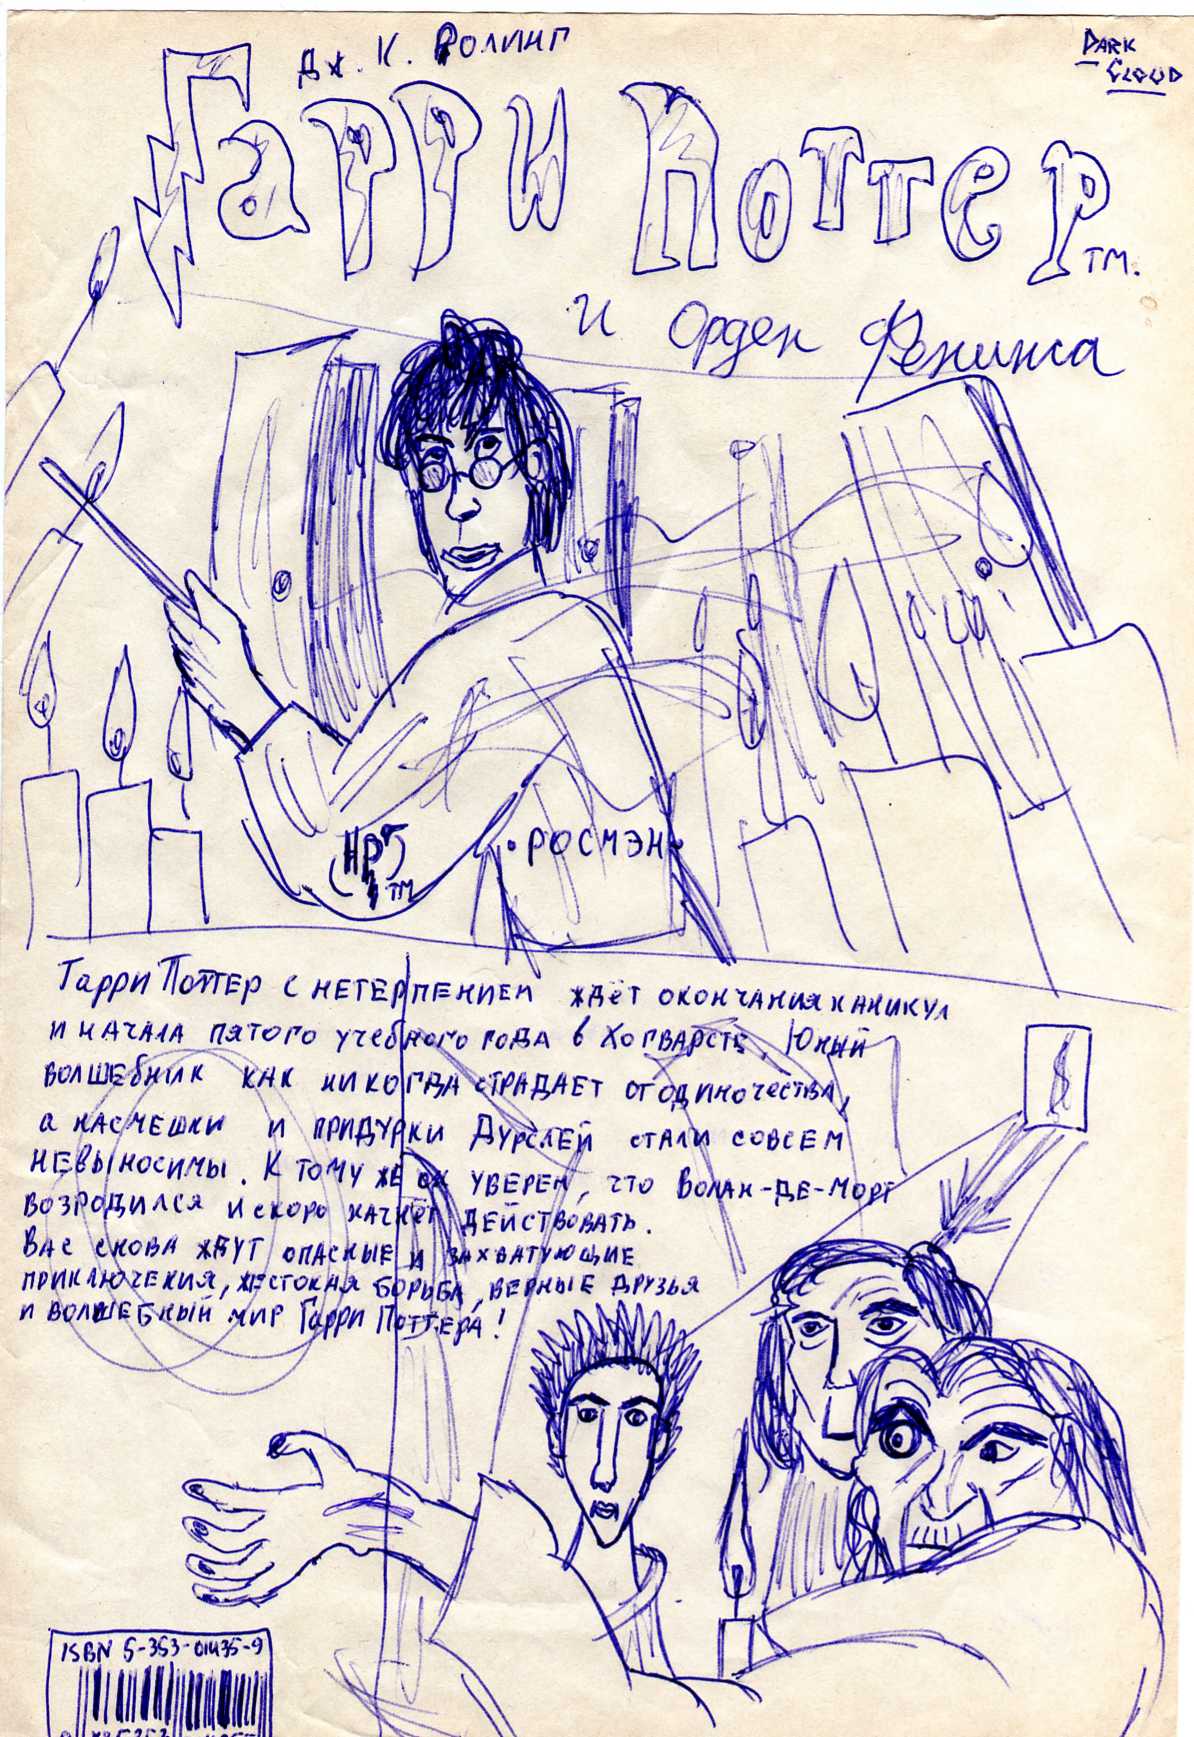 Дж. К. Ролинг
DARK
CLOUD
Гарри Поттер
ТМ.
и Орден Феникса
HP
ТМ
• РОСМЭН •
Гарри Поттер с нетерпением ждёт окончания каникул
и начала пятого учебного года в Хогвартсе. Юный
волшебник как никогда страдает от одиночества,
а насмешки и придирки Дурслей стали совсем
невыносимы. К тому же он уверен, что Волан-де-Морт
возродился и скоро начнёт действовать.
Вас снова ждут опасные и захватующие
приключения, жестокая борьба, верные друзья
и волшебный мир Гарри Поттера!
ISBN 5-353-01435-9